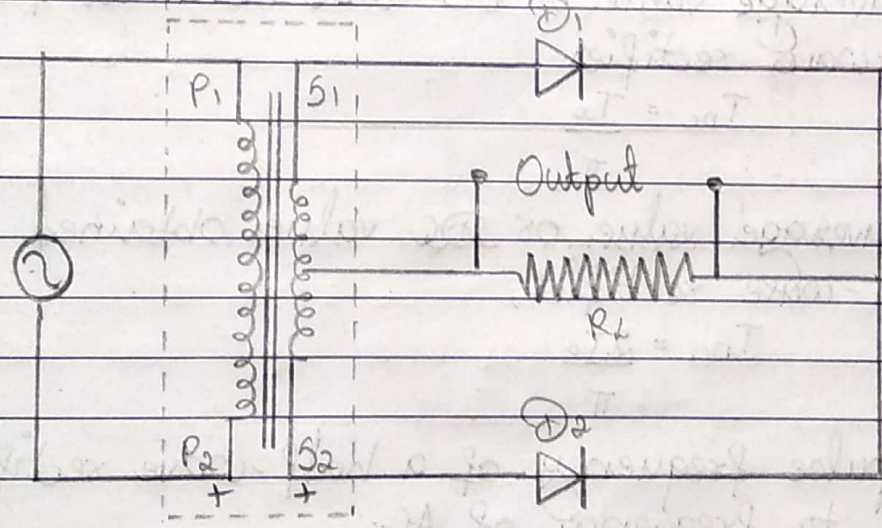 D1
P1 S1
Output
RL
D2
P2 S2
+ +